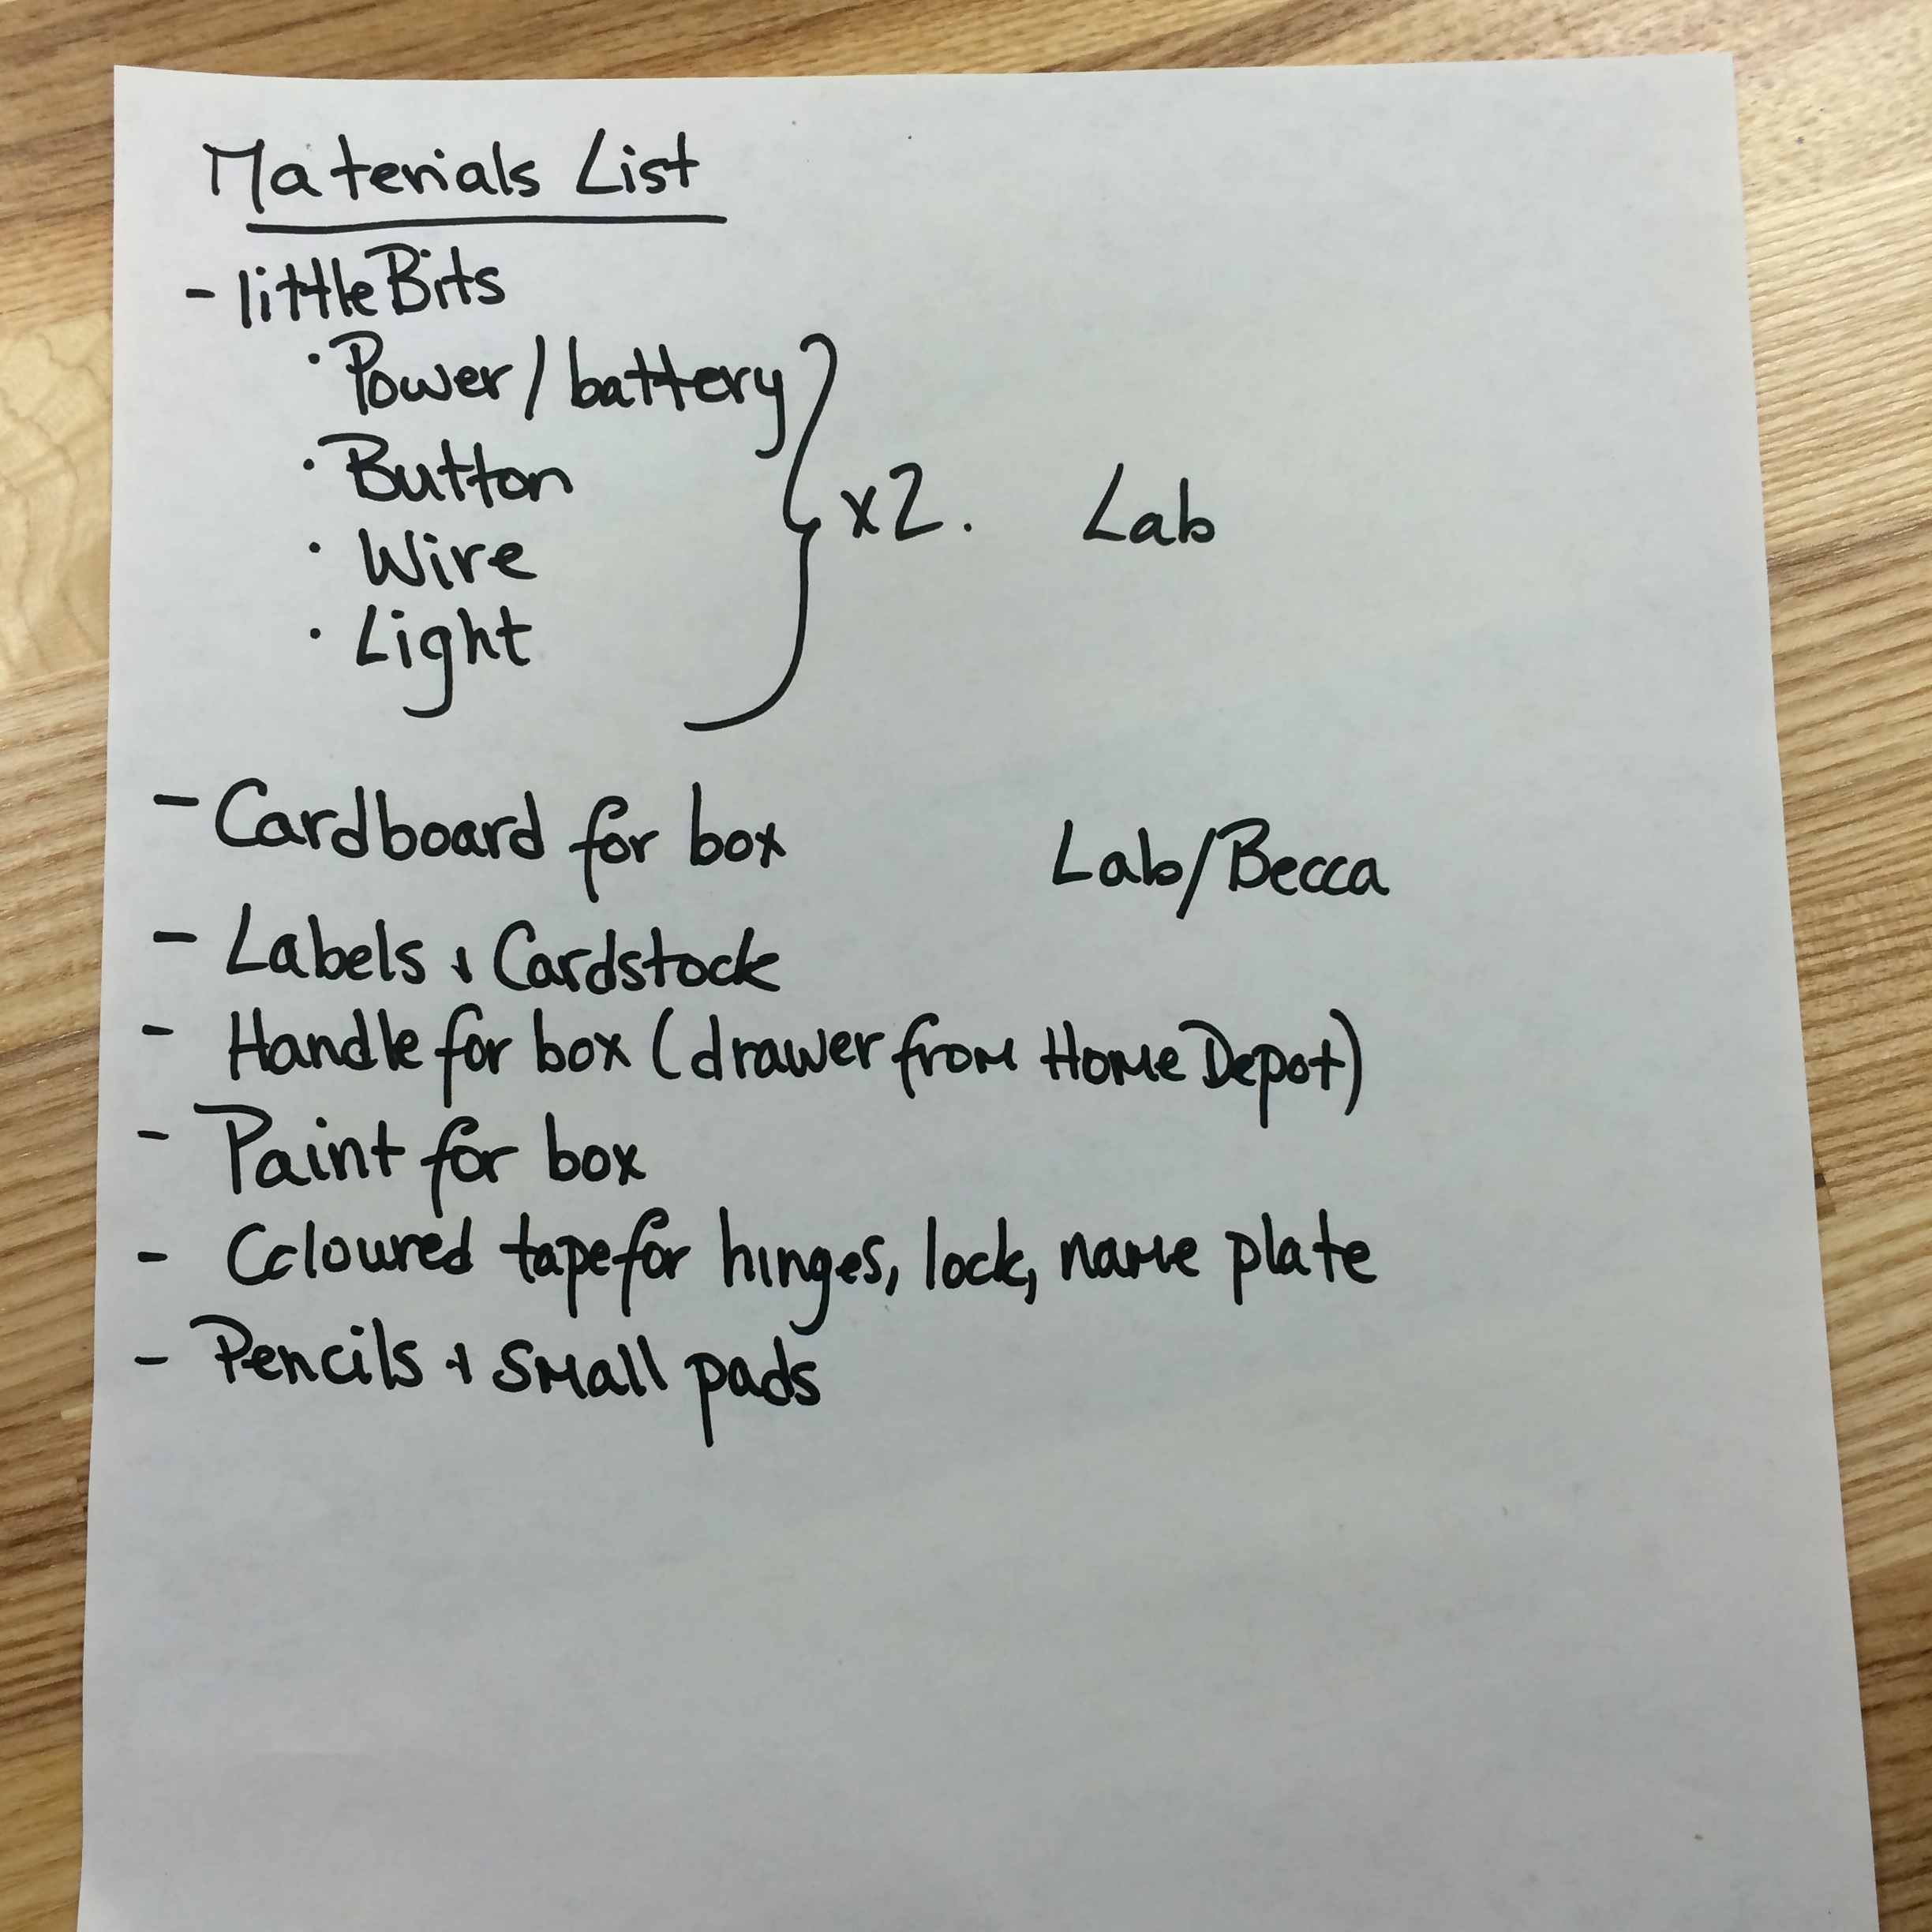 Materials List
- littleBits
· Power/battery
· Button
x2. Lab
· Wire
· Light
- Cardboard for box Lab/Becca
- Labels + Cardstock
- Handle for box (drawer from Home Depot)
- Paint for box
- Coloured tape for hinges, lock, name plate
- Pencils + small pads